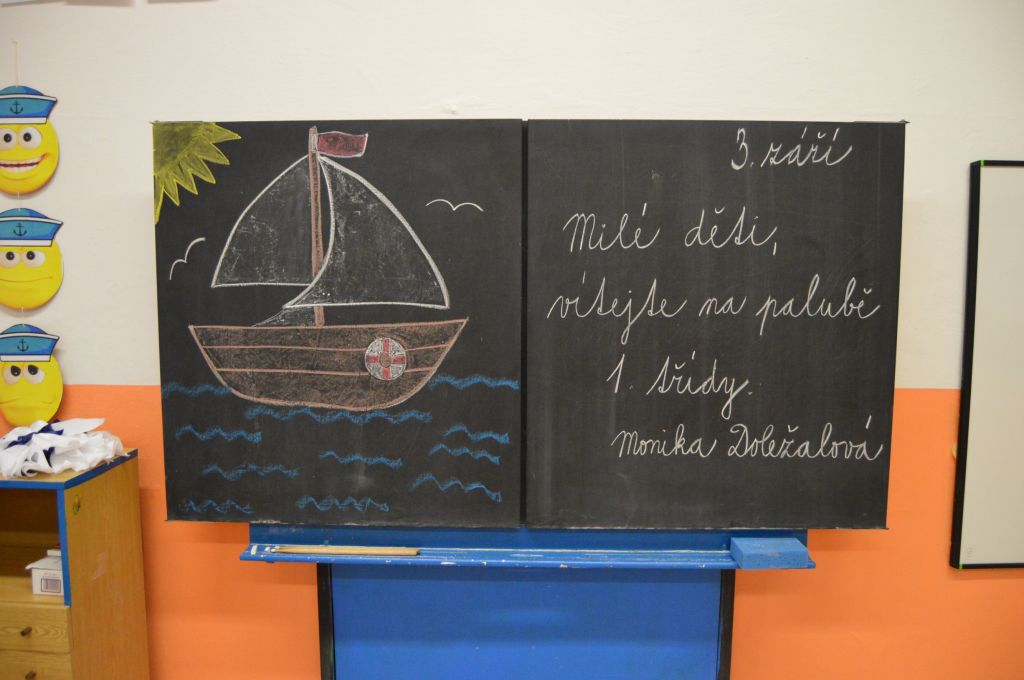 3. září
Milé děti,
vítejte na palubě
1. třídy.
Monika Doležalová